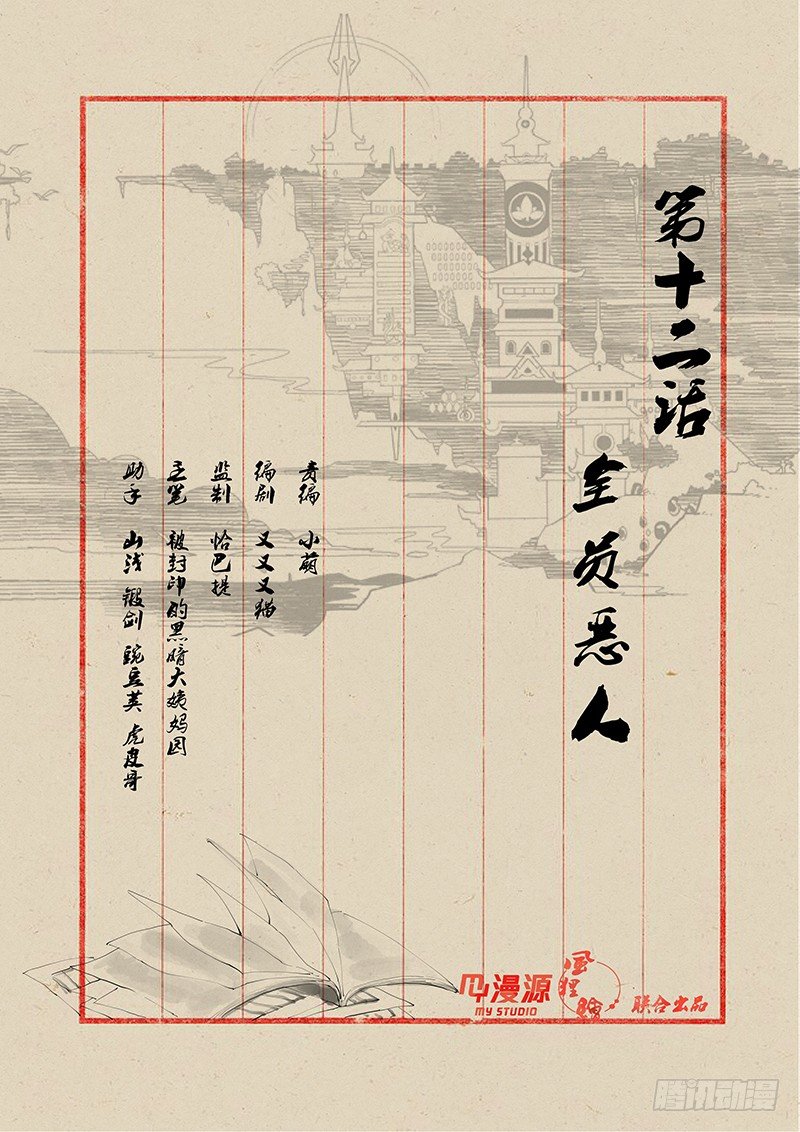 第十二话
全员恶人
责编 小萌
编剧 又又又猫
监制 恰巴提
主笔 被封印的黑暗大姨妈园
助手 山浅 锻剑 豌豆荚 虎皮哥
漫源
MY STUDIO
联合出品
腾讯动漫